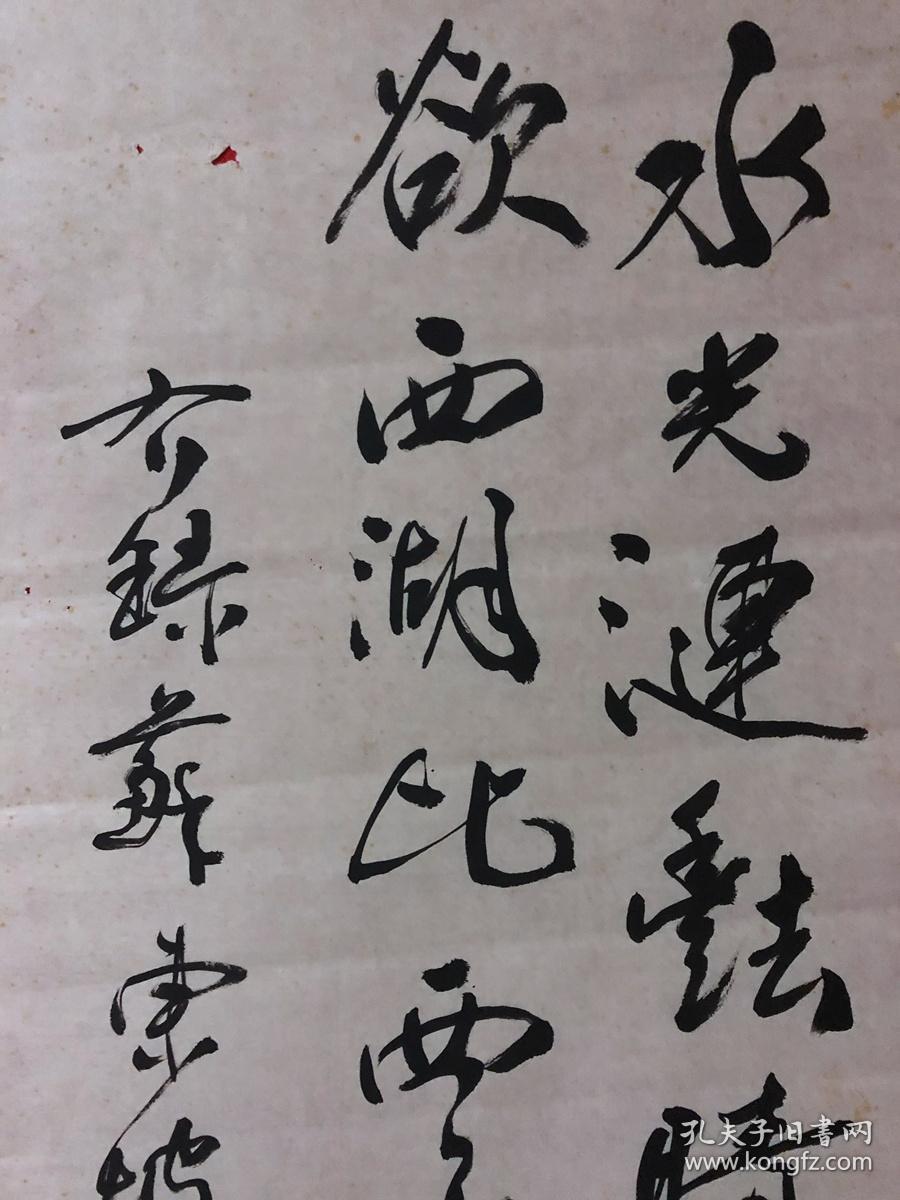 水光漣豔晴
欲西湖比西子
右錄蘇東坡
孔夫子旧书网
www.kongfz.com